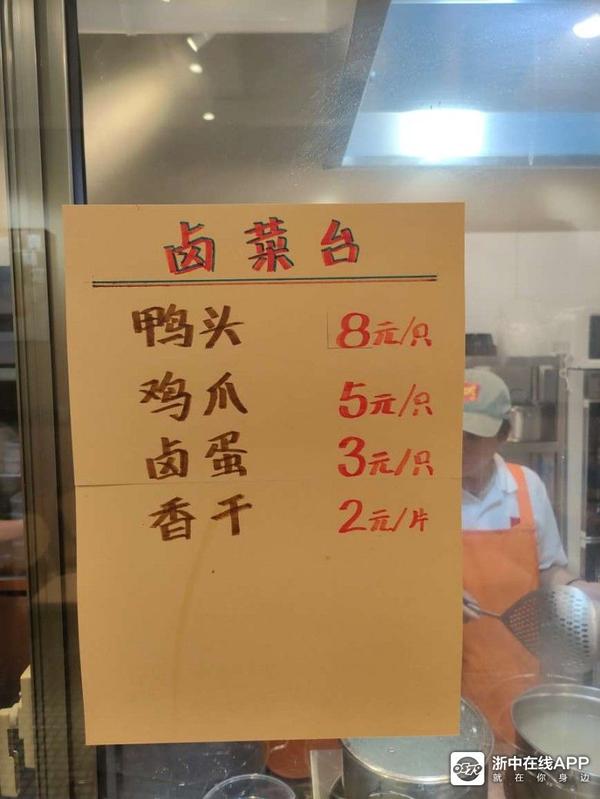 卤菜台
鸭头 8元/只
鸡爪 5元/只
卤蛋 3元/只
香干 2元/片
浙中在线APP
就在你身边